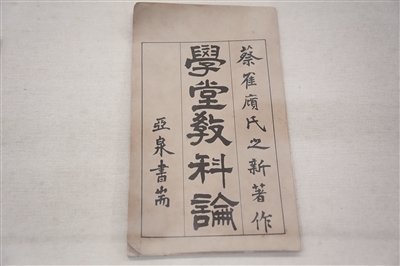 蔡隺廎氏之新著作
學堂教科論
亞泉書耑